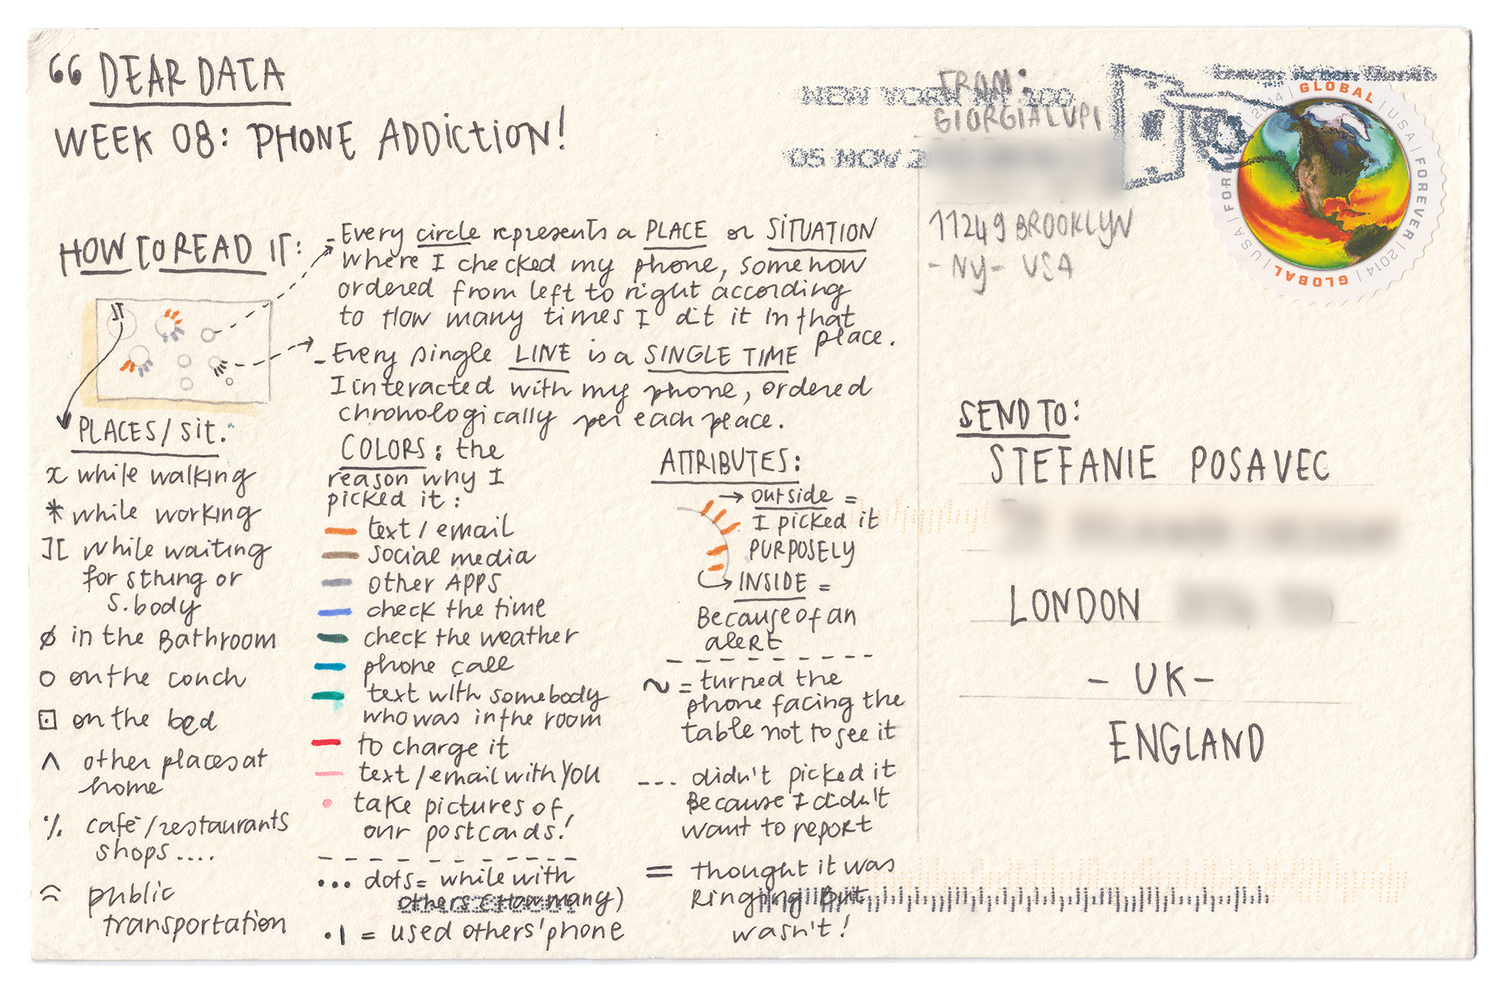 DEAR DATA
WEEK 08: PHONE ADDICTION!
HOW TO READ IT:
- Every circle represents a PLACE or SITUATION
where I checked my phone, somehow
ordered from left to right according
to How many times I dit it in that
place.
- Every single LINE is a SINGLE TIME
I interacted with my phone, ordered
chronologically per each place.
PLACES/sit.
x while walking
* while working
][ while waiting
for sthing or
s.body
ø in the Bathroom
o on the couch
⊡ on the bed
^ other places at
home
% cafè/restaurants
shops....
public
transportation
COLORS: the
reason why I
picked it:
text / email
social media
other APPS
check the time
check the weather
phone call
text with somebody
who was in the room
to charge it
text/email with YOU
take pictures of
our postcards!
... dots = while with
others (How many)
.| = used others' phone
ATTRIBUTES:
→ outside =
I picked it
PURPOSELY
→ INSIDE =
Because of an
alert
~ = turned the
phone facing the
table not to see it
--- didn't picked it
Because I didn't
want to report
= thought it was
Ringing But
wasn't!
FROM:
GIORGIA LUPI
11249 BROOKLYN
- NY - USA
NEW YORK NY 100
05 NOV 2
GLOBAL | USA | FOREVER | 2014 | GLOBAL | USA | FOREVER | 2014
SEND TO:
STEFANIE POSAVEC
LONDON
- UK -
ENGLAND